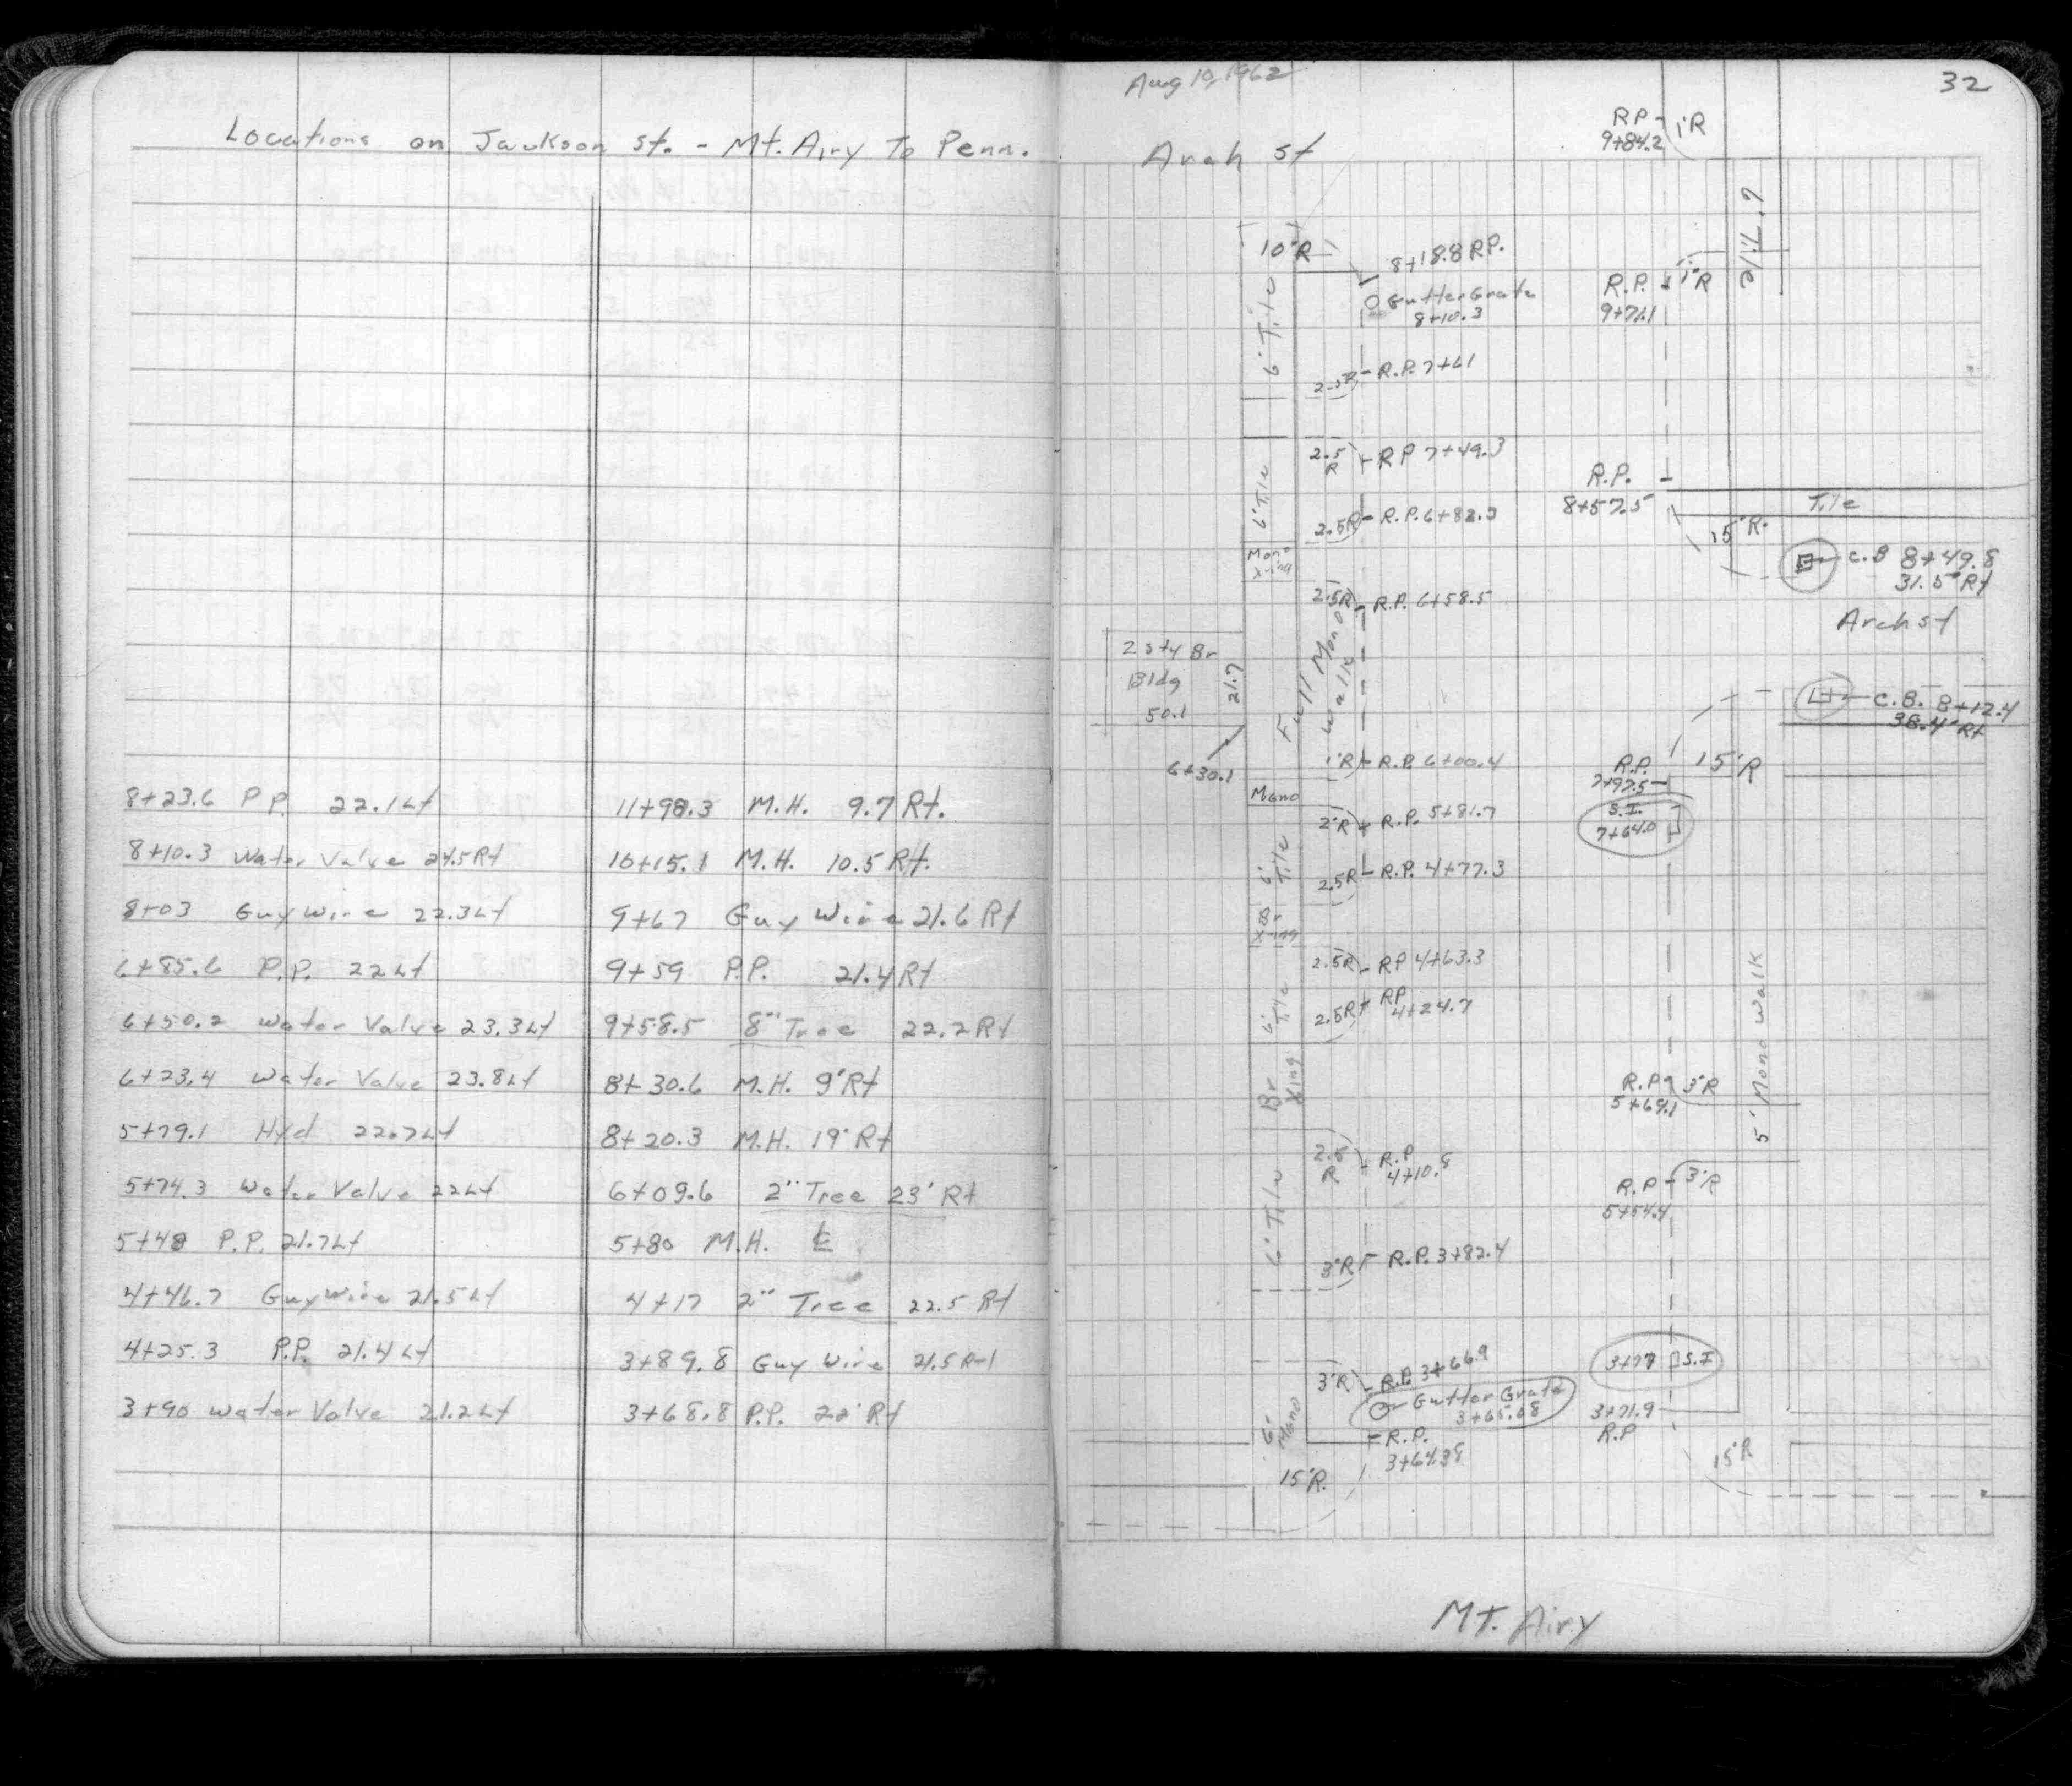 Locations on Jackson St. - Mt. Airy To Penn.
8+23.6 P.P. 22.1 Lt
8+10.3 Water Valve 24.5 Rt
8+03 Guy Wire 22.3 Lt
6+85.6 P.P. 22 Lt
6+50.2 Water Valve 23.3 Lt
6+23.4 Water Valve 23.8 Lt
5+79.1 Hyd 22.7 Lt
5+74.3 Water Valve 22 Lt
5+48 P.P. 21.7 Lt
4+46.7 Guy Wire 21.5 Lt
4+25.3 P.P. 21.4 Lt
3+90 Water Valve 21.2 Lt
11+98.3 M.H. 9.7 Rt.
10+15.1 M.H. 10.5 Rt.
9+67 Guy Wire 21.6 Rt
9+59 P.P. 21.4 Rt
9+58.5 8" Tree 22.2 Rt
8+30.6 M.H. 9' Rt
8+20.3 M.H. 19' Rt
6+09.6 2" Tree 23' Rt
5+80 M.H. ℄
4+17 2" Tree 22.5 Rt
3+89.8 Guy Wire 21.5 Rt
3+68.8 P.P. 22' Rt
Aug 10, 1962
32
Arch St
10'R
8+18.8 R.P.
Gutter Grate
8+10.3
6' Tile
2.5R
R.P. 7+61
2.5
R
RP 7+49.3
6' Tile
2.5R
R.P. 6+82.3
Mono
X-ing
2.5R
R.P. 6+58.5
2 Sty Br
Bldg
50.1
21.7
6+30.1
Full Mono
Walk
1'R
R.P. 6+00.4
Mono
2'R
R.P. 5+81.7
6'
Tile
2.5R
R.P. 4+77.3
Br
X-ing
2.5R
RP 4+63.3
6'
Tile
2.5R
RP
4+24.7
Br
Xing
2.5
R
R.P
4+10.8
6' Tile
3'R
R.P. 3+82.4
3'R
R.P. 3+66.9
Gutter Grate
3+65.68
6'
Mono
R.P.
3+64.38
15'R.
RP
9+84.2
1'R
6' Tile
R.P.
9+71.1
1'R
R.P.
8+57.5
Tile
15'R.
C.B 8+49.8
31.5' Rt
Arch St
C.B. 8+12.4
38.4' Rt
R.P.
7+97.5
15'R
S.I.
7+64.0
5' Mono Walk
R.P.
5+69.1
3'R
R.P
5+54.4
3'R
3+77 S.I
3+71.9
R.P
15'R
MT. Airy